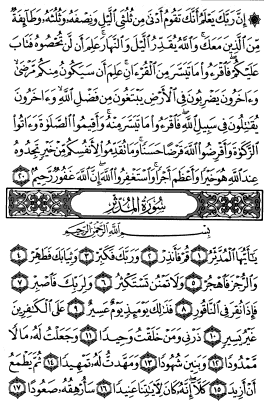 ۞ إِنَّ رَبَّكَ يَعْلَمُ أَنَّكَ تَقُومُ أَدْنَىٰ مِن ثُلُثَيِ ٱلَّيْلِ وَنِصْفَهُۥ وَثُلُثَهُۥ وَطَآئِفَةٌ
مِّنَ ٱلَّذِينَ مَعَكَ ۚ وَٱللَّهُ يُقَدِّرُ ٱلَّيْلَ وَٱلنَّهَارَ ۚ عَلِمَ أَن لَّن تُحْصُوهُ فَتَابَ
عَلَيْكُمْ ۖ فَٱقْرَءُوا۟ مَا تَيَسَّرَ مِنَ ٱلْقُرْءَانِ ۚ عَلِمَ أَن سَيَكُونُ مِنكُم مَّرْضَىٰ ۙ
وَءَاخَرُونَ يَضْرِبُونَ فِى ٱلْأَرْضِ يَبْتَغُونَ مِن فَضْلِ ٱللَّهِ ۙ وَءَاخَرُونَ
يُقَٰتِلُونَ فِى سَبِيلِ ٱللَّهِ ۖ فَٱقْرَءُوا۟ مَا تَيَسَّرَ مِنْهُ ۚ وَأَقِيمُوا۟ ٱلصَّلَوٰةَ وَءَاتُوا۟
ٱلزَّكَوٰةَ وَأَقْرِضُوا۟ ٱللَّهَ قَرْضًا حَسَنًا ۚ وَمَا تُقَدِّمُوا۟ لِأَنفُسِكُم مِّنْ خَيْرٍ تَجِدُوهُ
عِندَ ٱللَّهِ هُوَ خَيْرًا وَأَعْظَمَ أَجْرًا ۚ وَٱسْتَغْفِرُوا۟ ٱللَّهَ ۖ إِنَّ ٱللَّهَ غَفُورٌ رَّحِيمٌۢ ٢٠
سُورَةُ المُدَّثِّرِ
بِسْمِ ٱللَّهِ ٱلرَّحْمَٰنِ ٱلرَّحِيمِ
يَٰٓأَيُّهَا ٱلْمُدَّثِّرُ ١ قُمْ فَأَنذِرْ ٢ وَرَبَّكَ فَكَبِّرْ ٣ وَثِيَابَكَ فَطَهِّرْ ٤
وَٱلرُّجْزَ فَٱهْجُرْ ٥ وَلَا تَمْنُن تَسْتَكْثِرُ ٦ وَلِرَبِّكَ فَٱصْبِرْ ٧
فَإِذَا نُقِرَ فِى ٱلنَّاقُورِ ٨ فَذَٰلِكَ يَوْمَئِذٍ يَوْمٌ عَسِيرٌ ٩ عَلَى ٱلْكَٰفِرِينَ
غَيْرُ يَسِيرٍ ١٠ ذَرْنِى وَمَنْ خَلَقْتُ وَحِيدًا ١١ وَجَعَلْتُ لَهُۥ مَالًا
مَّمْدُودًا ١٢ وَبَنِينَ شُهُودًا ١٣ وَمَهَّدتُّ لَهُۥ تَمْهِيدًا ١٤ ثُمَّ يَطْمَعُ
أَنْ أَزِيدَ ١٥ كَلَّآ ۖ إِنَّهُۥ كَانَ لِـَٔايَٰتِنَا عَنِيدًا ١٦ سَأُرْهِقُهُۥ صَعُودًا ١٧